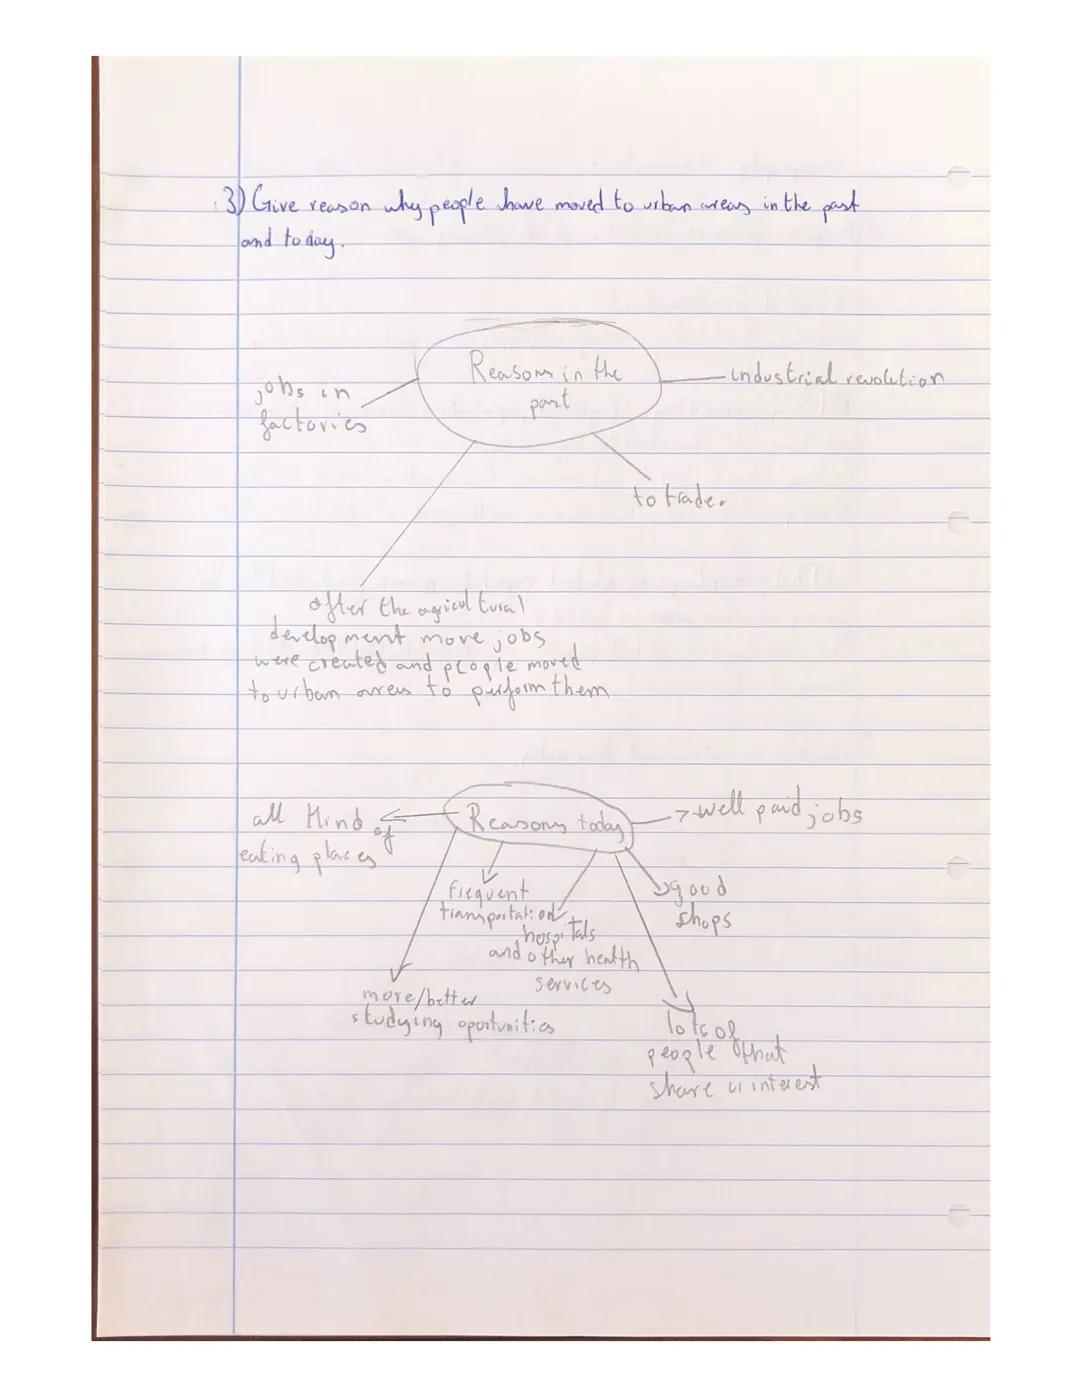 3) Give reason why people have moved to urban areas in the past
and today.
Reasons in the
past
jobs in
factories
industrial revolution
to trade.
after the agricultural
development more jobs
were created and people moved
to urban areas to perform them
Reasons today
all kind of
eating places
well paid jobs
frequent
transportation
hospitals
and other health
services
good
shops
more/better
studying oportunities
lots of
people that
share ur interest